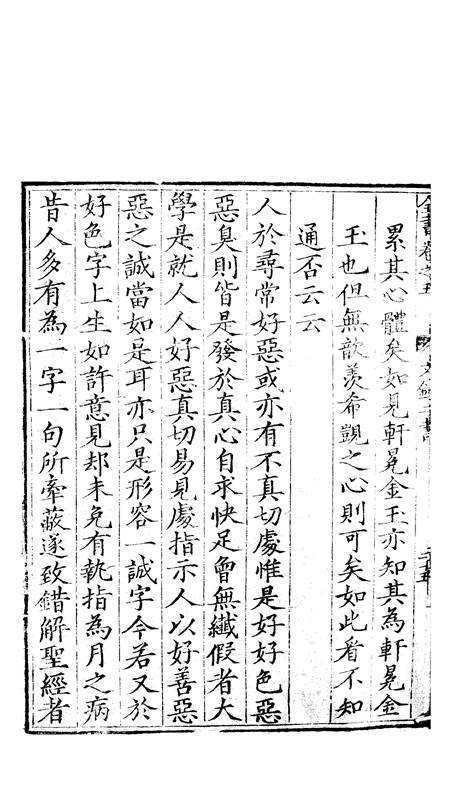 累其心體矣如見軒冕金玉亦知其為軒冕金
玉也但無歆羨希覬之心則可矣如此看不知
通否云云
人於尋常好惡或亦有不真切處惟是好好色惡
惡臭則皆是發於真心自求快足曾無纖假者大
學是就人人好惡真切易見處指示人以好善惡
惡之誠當如是耳亦只是形容一誠字今若又於
好色字上生如許意見却未免有執指為月之病
昔人多有為一字一句所牽蔽遂致錯解聖經者